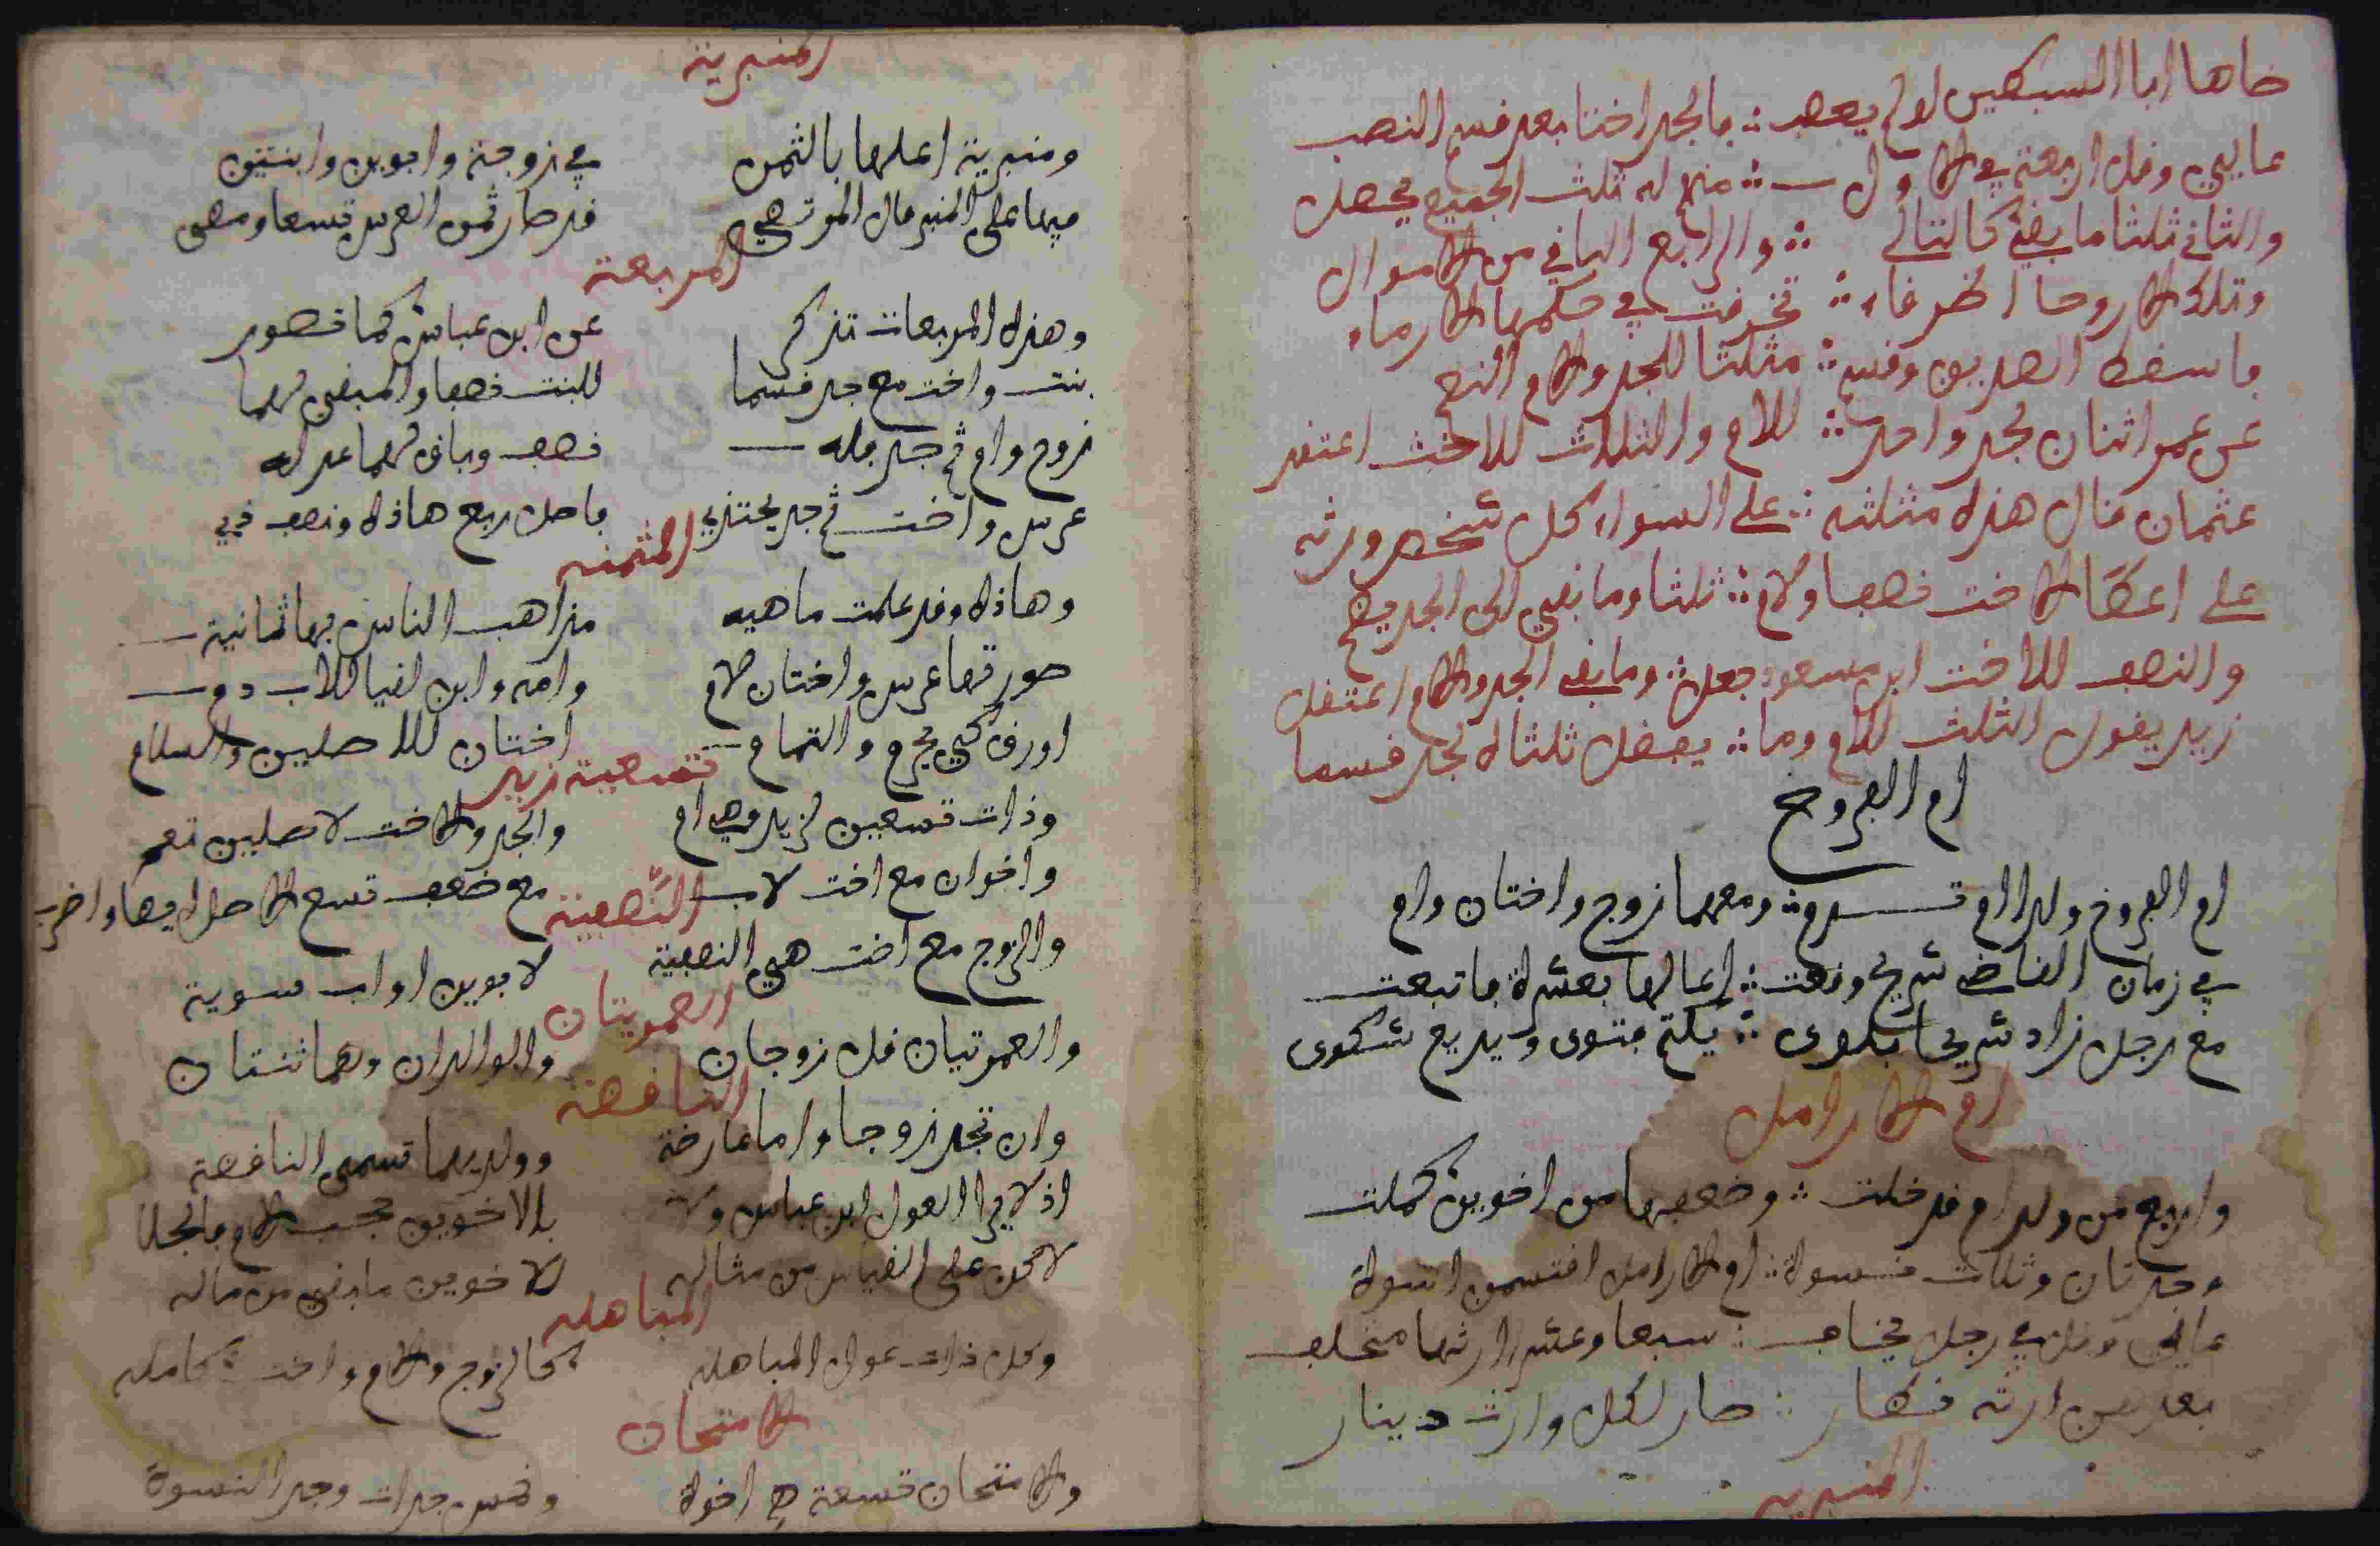 ضاها ابا السبطين لو لم يعصب ∴ بالجد اختا بعد فسم النصب
عما يلي وفل اربعة في الاول ∴ منهم له ثلث الجميع يحصل
والثاني ثلثا ما بفي كالتالي ∴ والرابع البافي من الاموال
وتلك الاروحا الخرفاء ∴ تخرفت في حكمها الارماء
باسفط الصديق وفسم ∴ مثلثا للجد والام النعم
عن عمر اثنان لجد واحد ∴ للام والثلاث للاخت اعتفد
عثمان فال هذه مثلثه ∴ على السواء كل شخص ورثه
على اعطا الاخت نصفا ولام ∴ ثلثا وما بفي الى الجد يضم
والنصف للاخت ابن مسعود جعل ∴ وما بفي الجد والام اعتفل
زيد يفول الثلث للام وما ∴ يفضل ثلثاه لجد فسما
ام الفروخ
ام الفروخ ولدا ام تسم ∴ ومعهما زوج واختان وام
في زمان الفاضي شريح وفعت ∴ اعالها بعشرة باتبعت
مع رجل زاد شريحا بلوى ∴ يكتم فتوى ويذيع شكوى
ام الارامل
واربع من ولد ام فد خلت ∴ وضعفها من اخوين كملت
وجدتان وثلاث نسوة ∴ ام الارامل افتسمن اسوة
عاي وفل في رجل يخاف ∴ سبعا وعشرا ارثها مخلف
بعد من ارثه نظار ∴ صار لكل وارث دينار
المنبرية
المنبرية
ومنبرية اعلها بالثمن في زوجة وابوين وابنتين
فيها على المنبر فال المرتضى فد صار ثمن العرس تسعا ومضى
المربعة
وهذه المربعات تذكر عن ابن عباس كما تصور
بنت واخت مع جد فسما للبنت نصفا والمبفى لهما
زوج وام ثم جد فله نصف وباق لهما عدله
عرس واخت ثم جد يحتذي باصل ربع هاذه ونصف ذي
المثمنه
وهاذه وفد علمت ماهيه مذاهب الناس بها ثمانية
صورتها عرس واختان لام وامه وابن لفيا للاب دم
اورق كي يحرم والتمام اختان للاصلين والسلام
تسعينية زيد
وذات تسعين لزيد وهي ام والجد والاخت لاصلين تعم
واخوان مع اخت لاب مع ضعف تسع الاصل ايضا واضرب
النصفية
والزوج مع اخت هي النصفية لابوين او اب سوية
العمريتان
والعمرتيان فل زوجان والوالدان وهما ثنتان
النافضة
وان تجد زوجا واما عارضة وولديها تسمى النافضة
اذ لا يرا العول ابن عباس ولا بالاخوين حجب الام فانجلا
لاكن على الفياس من مثاله للاخوين ما بفي من ماله
المباهله
وكل ذات عول المباهله كالزوج والام واخت كامله
الامتحان
والامتحان تسعة هم اخوة وخمس جدات وجد النسوة